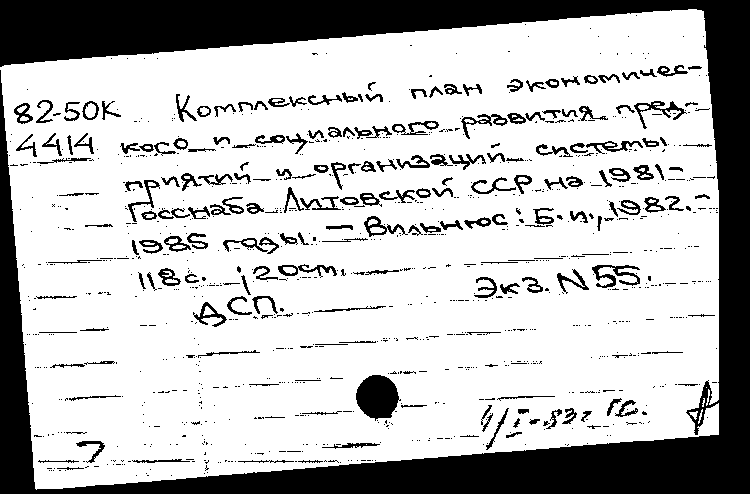 82-50К Комплексный план экономичес-
4414 кого и социального развития пред-
приятий и организаций системы
Госснаба Литовской ССР на 1981-
1985 годы. — Вильнюс: Б. и., 1982. -
118 с. ; 20 см.
ДСП. Экз. N 55.
4/I-83г ГС.
7